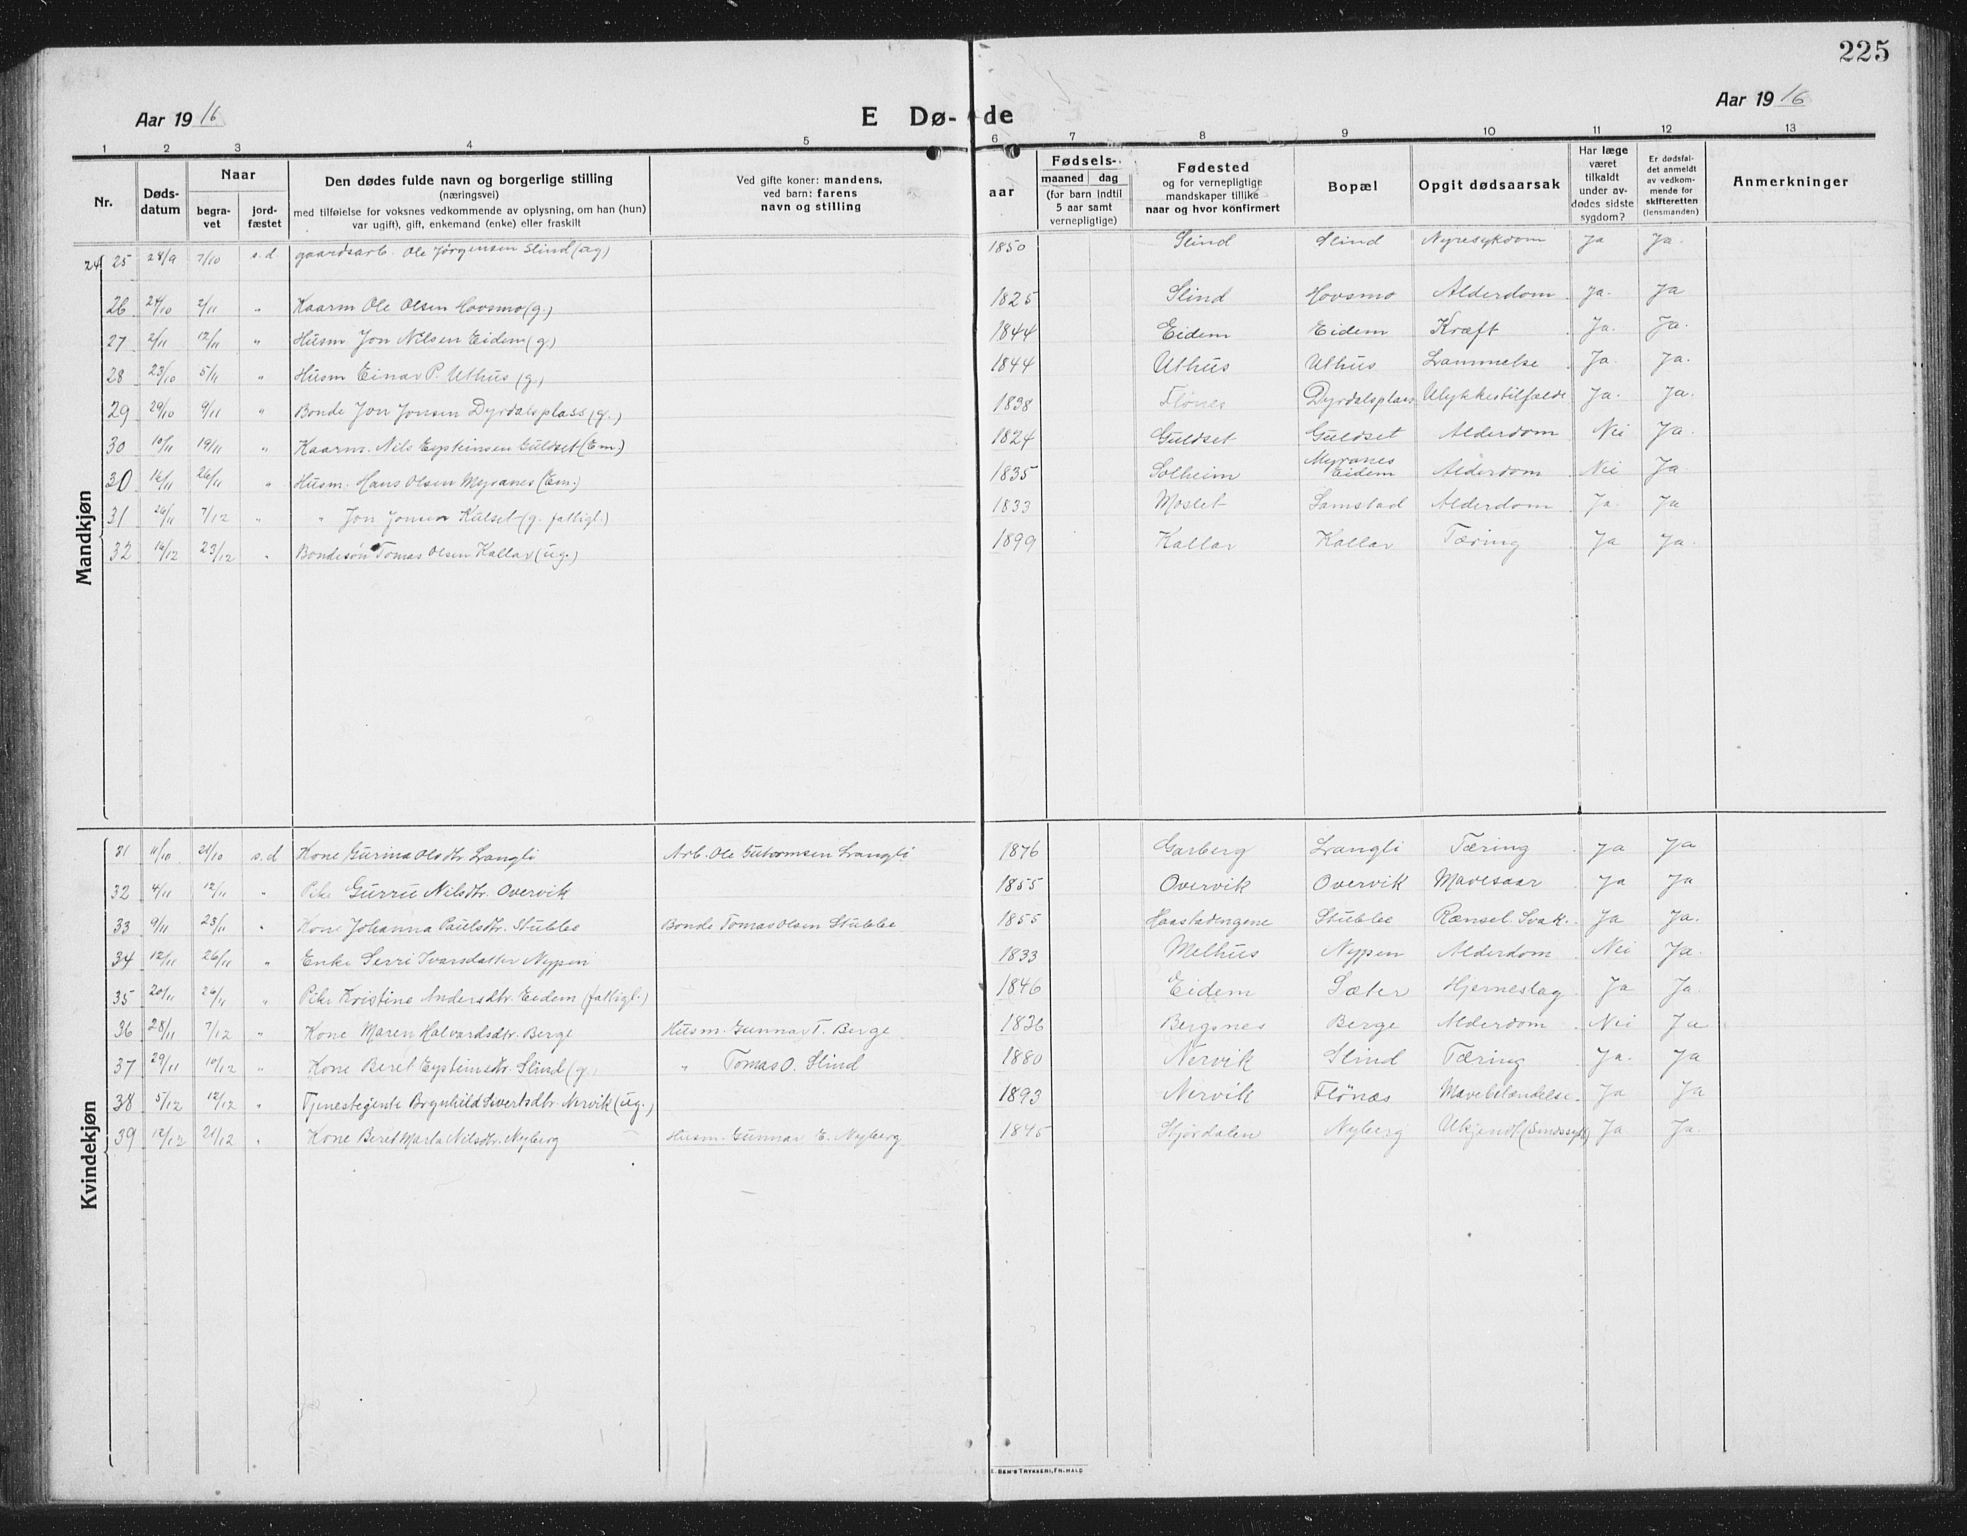 225
Aar 1916
E Dø-de
Aar 1916
1 2 3 4 5 6 7 8 9 10 11 12 13
Nr.
Døds-
datum
Naar
begra-
vet
jord-
fæstet
Den dødes fulde navn og borgerlige stilling
(næringsvei)
med tilføielse for voksnes vedkommende av oplysning, om han (hun)
var ugift), gift, enkemand (enke) eller fraskilt
Ved gifte koner: mandens,
ved barn: farens
navn og stilling
aar
Fødsels-
maaned dag
(for barn indtil
5 aar samt
vernepligtige)
Fødested
og for vernepligtige
mandskaper tillike
naar og hvor konfirmert
Bopæl
Opgit dødsaarsak
Har læge
været
tilkaldt
under av-
dødes sidste
sygdom?
Er dødsfal-
det anmeldt
av vedkom-
mende for
skifteretten
(lensmanden)
Anmerkninger
Mandkjøn
24 25 28/9 7/10 s.d gaardsarb. Ole Jørgensen Slind (ug) 1850 Slind Slind Nyresykdom Ja Ja.
26 24/10 2/11 " Kaarm Ole Olsen Hovsmo (g.) 1825 Slind Hovsmo Alderdom Ja. Ja
27 2/11 12/11 " Husm Jon Nilsen Eidem (g.) 1844 Eidem Eidem Kræft Ja. Ja.
28 23/10 5/11 " Husm Einar P. Uthus (g.) 1844 Uthus Uthus Lammelse Ja. Ja.
29 29/10 9/11 " Bonde Jon Jonsen Dyrdalsplass (g.) 1838 Flönes Dyrdalsplass Ulykkestilfælde Ja. Ja.
30 10/11 19/11 " Kaarm. Nils Eysteinsen Guldset (Em) 1824 Guldset Guldset Alderdom Nei Ja.
30 16/11 26/11 " Husm. Hans Olsen Myranes (Em.) 1835 Solheim Myranes Eidem Alderdom Nei Ja
31 26/11 7/12 " " Jon Jonsen Kulset (g. fattigl.) 1833 Moslet Samstad Alderdom Ja Ja
32 14/12 23/12 " Bondesön Tomas Olsen Kallar (ug.) 1899 Kallar Kallar Tæring Ja Ja.
Kvindekjøn
31 11/10 21/10 s.d Kone Gurina Olsdtr. Langli Arb. Ole Guttormsen Langli 1876 Garberg Langli Tæring Ja Ja
32 4/11 12/11 " Pike Gurru Nilsdtr. Overvik 1855 Overvik Overvik Mavesaar Ja Ja
33 9/11 23/11 " Kone Johanna Paulsdtr. Stubbe Bonde Tomas Olsen Stubbe 1855 Haastadengene Stubbe Rænsel. Svak. Ja Ja.
34 12/11 26/11 " Enke Serri Ivarsdatter Nypen 1833 Melhus Nypen Alderdom Nei Ja.
35 20/11 26/11 " Pike Kristine Andersdtr. Eidem (fattigl.) 1846 Eidem Sæter Hjerneslag Ja Ja.
36 28/11 7/12 " Kone Maren Halvardsdtr. Berge Husm. Gunnar T. Berge 1836 Bergsnes Berge Alderdom Nei Ja
37 29/11 10/12 " Kone Beret Eysteinsdtr. Slind (g.) " Tomas O. Slind 1880 Nervik Slind Tæring Ja. Ja
38 5/12 12/12 " Tjenestegente Brynhild Sivertsdtr. Nervik (ug.) 1893 Nervik Flönæs Mavebetændelse Ja Ja
39 12/12 21/12 " Kone Beret Marta Nilsdtr. Nyberg Husm. Gunnar E. Nyberg 1845 Stjørdalen Nyberg Ukjendt (Sindssyk) Ja Ja.
E. SEM'S TRYKKERI, FR.HALD